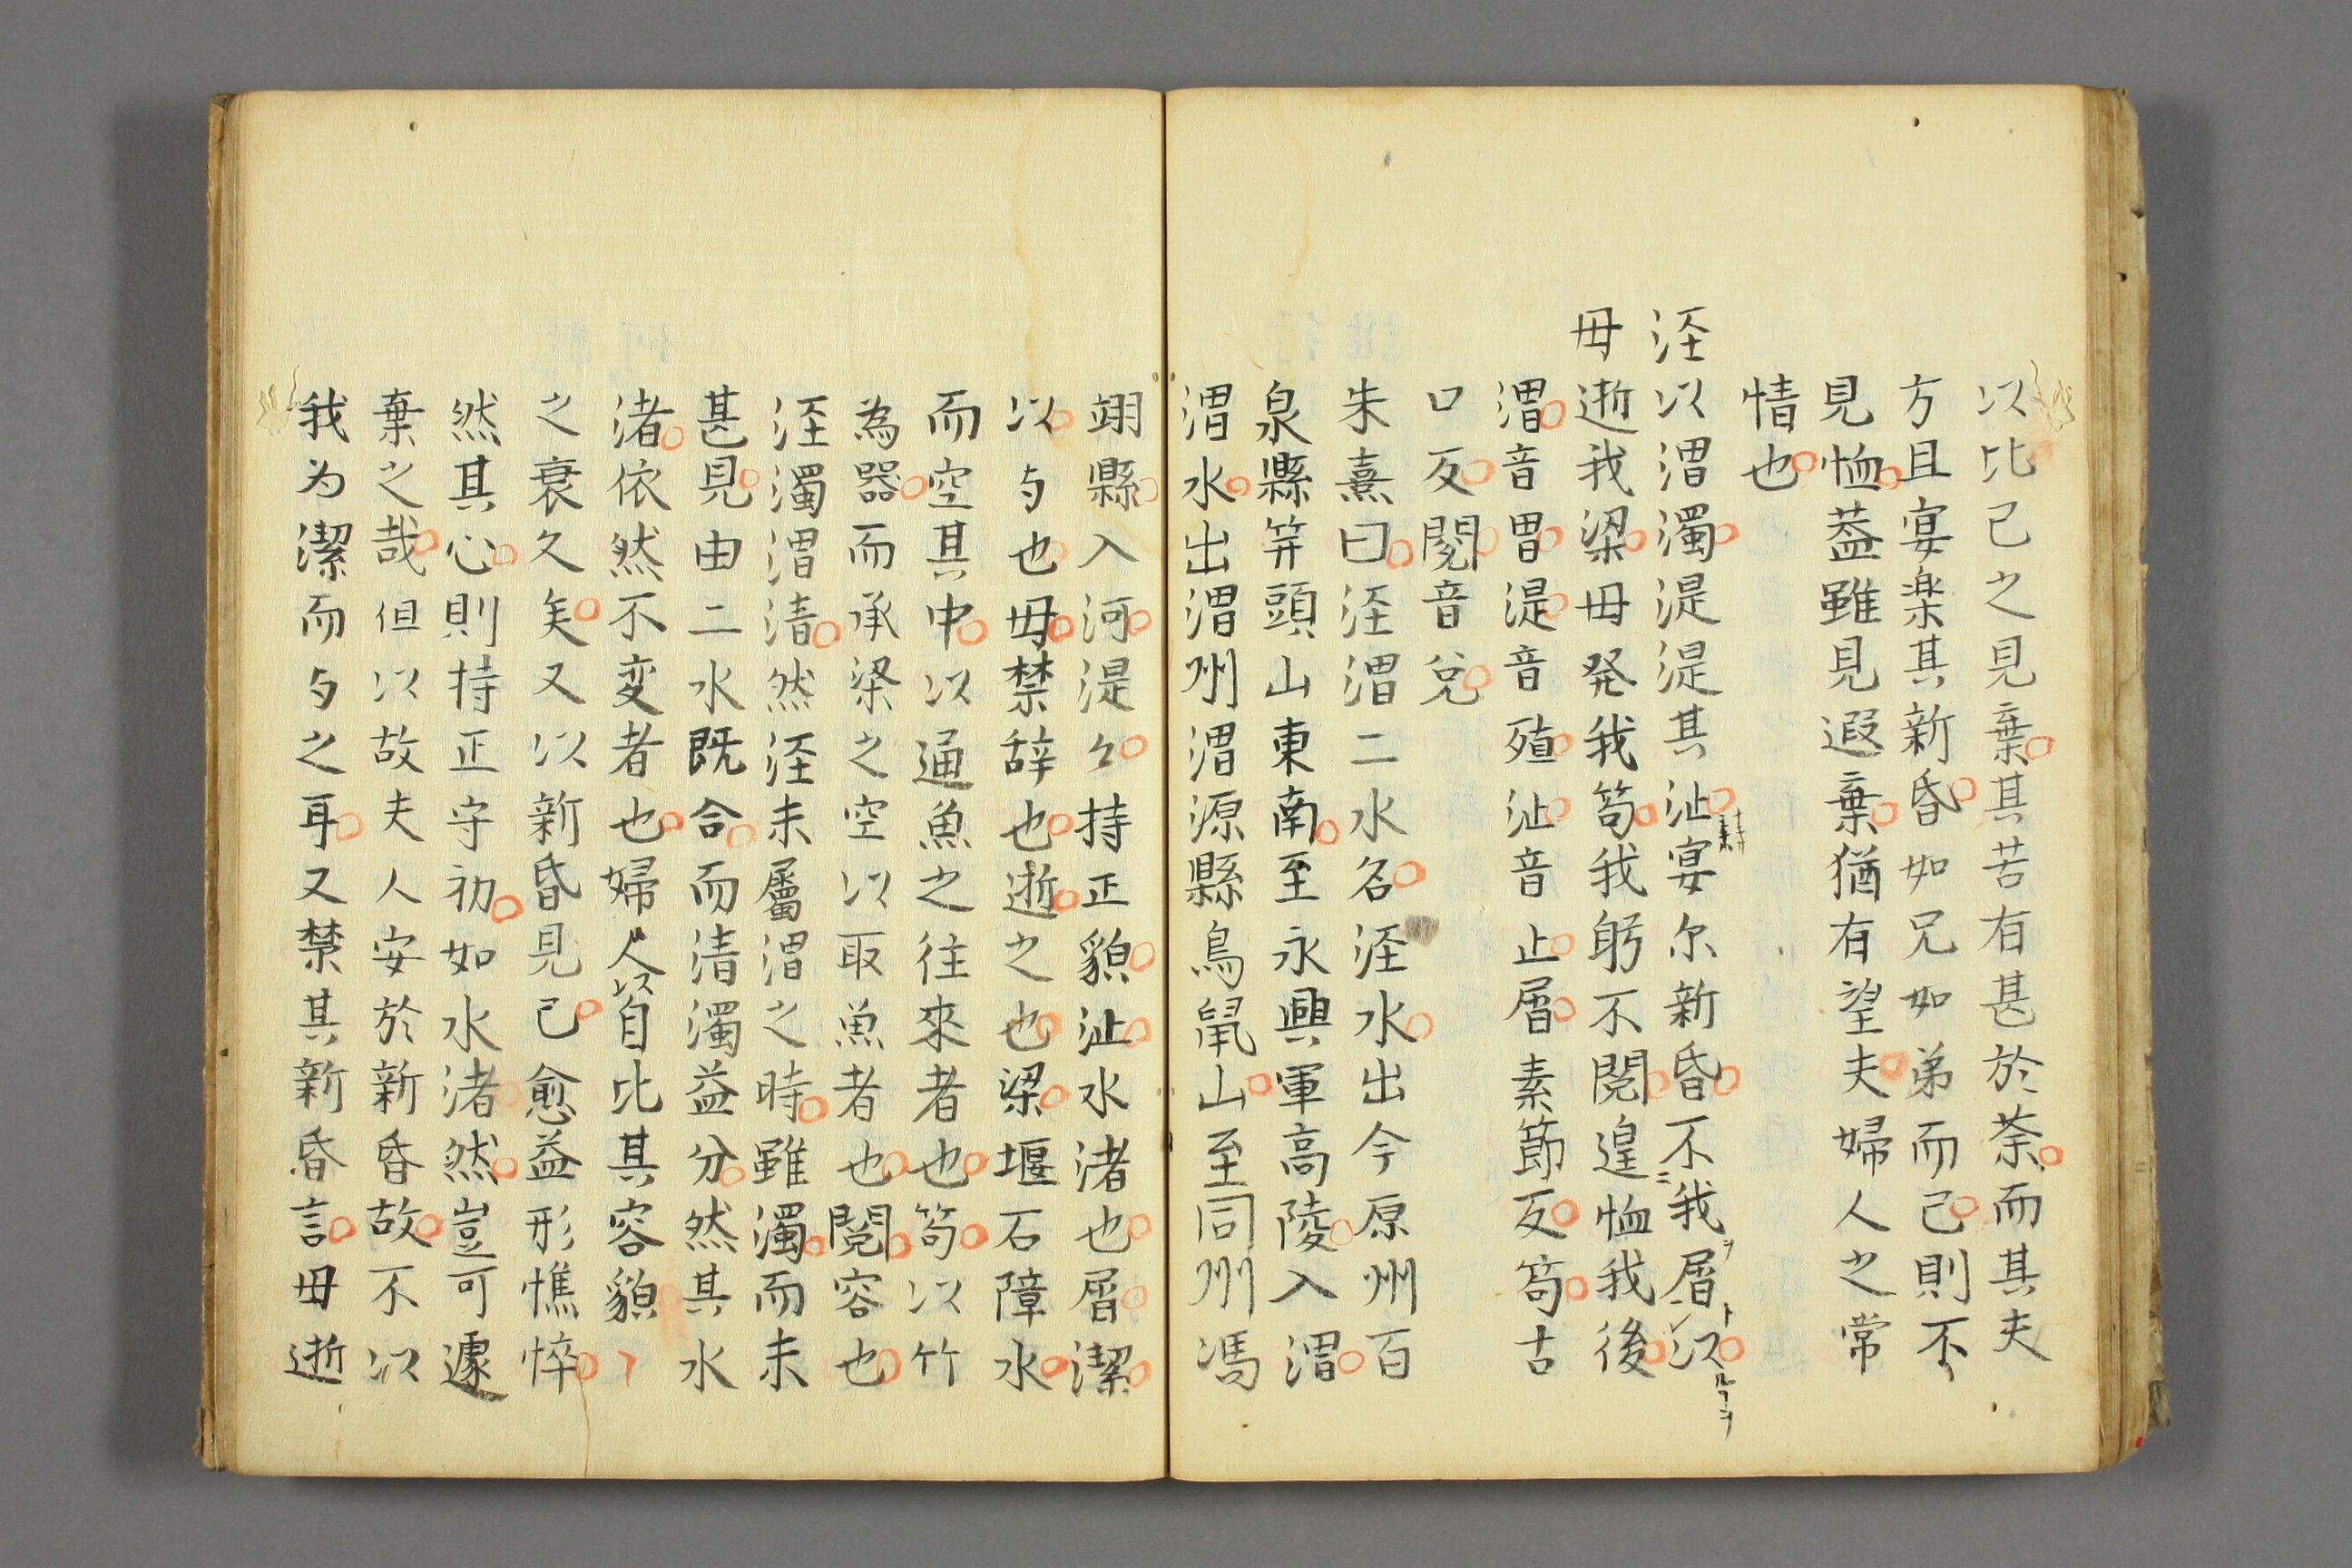 以比己之見棄其苦有甚於荼而其夫
方且宴楽其新昏如兄如弟而已則不
見恤葢雖見遐棄猶有望夫婦人之常
情也
泾以渭濁湜湜其沚宴尓新昏不我屑以
毋逝我梁毋発我笱我躬不閱遑恤我後
渭音胃湜音殖沚音止屑素節反笱古
口反閱音兌
朱熹曰泾渭二水名泾水出今原州百
泉縣笄頭山東南至永興軍高陵入渭
渭水出渭州渭源縣鳥鼠山至同州馮
翊縣入河湜々持正貌沚水渚也屑潔
以与也毋禁辞也逝之也梁堰石障水
而空其中以通魚之往來者也笱以竹
為器而承梁之空以取魚者也閱容也
泾濁渭清然泾未屬渭之時雖濁而未
甚見由二水既合而清濁益分然其水
渚依然不変者也婦人以自比其容貌
之衰久矣又以新昏見己愈益形憔悴
然其心則持正守初如水渚然豈可遽
棄之哉但以故夫人安於新昏故不以
我为潔而与之耳又禁其新昏言毋逝